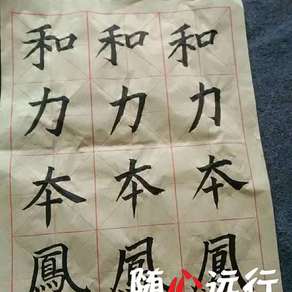 和和和
力力力
本本本
鳳鳳鳳
随心远行